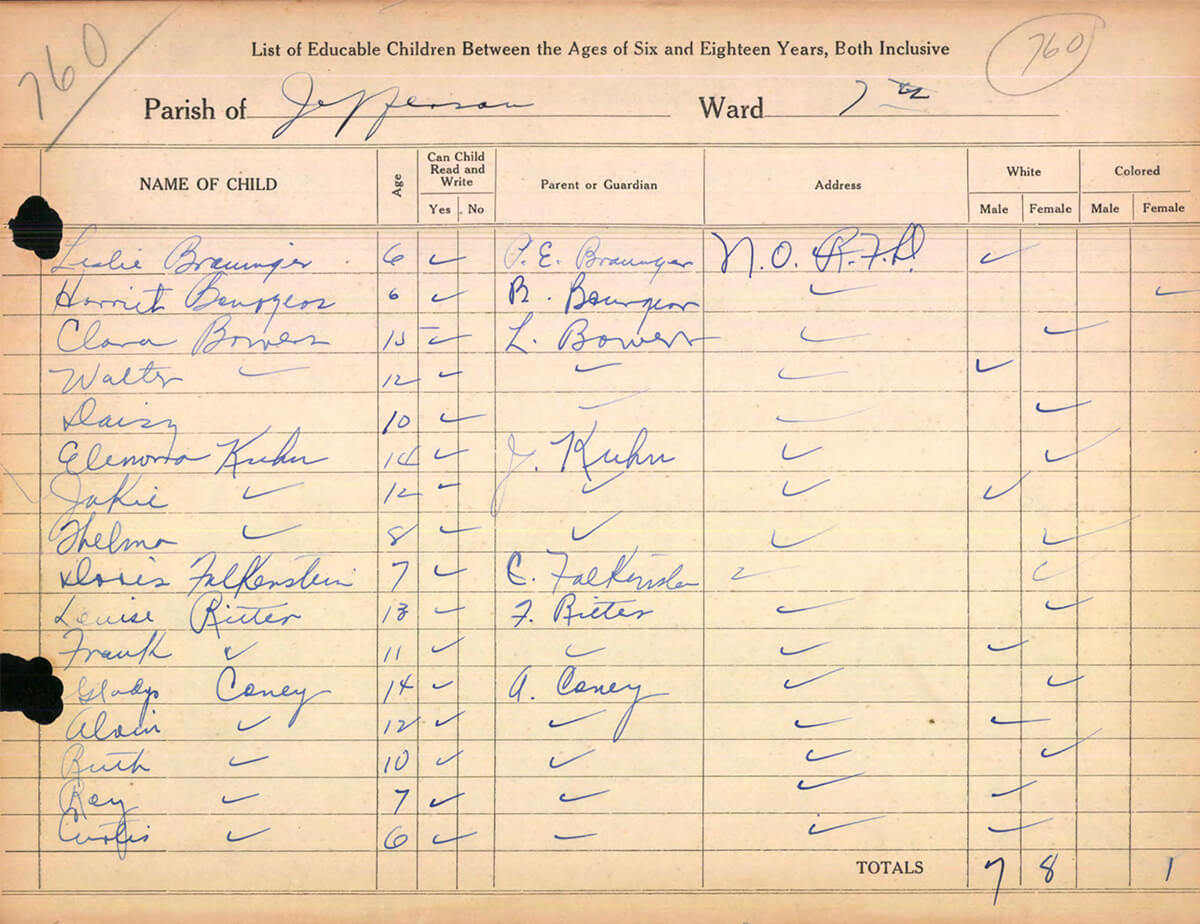 760
760
List of Educable Children Between the Ages of Six and Eighteen Years, Both Inclusive
Parish of Jefferson Ward 7th
NAME OF CHILD Age Can Child Read and Write Yes No Parent or Guardian Address White Male Female Colored Male Female
Leslie Brauninger 6 ✓ P. E. Brauninger N.O. R.F.D. ✓
Harriet Bourgeois 6 ✓ B. Bourgeois ✓ ✓
Clara Bowers 15 ✓ L. Bowers ✓ ✓
Walter ✓ 12 ✓ ✓ ✓ ✓
Daisy 10 ✓ ✓ ✓ ✓
Elenora Kuhn 14 ✓ J. Kuhn ✓ ✓
Jakie ✓ 12 ✓ ✓ ✓ ✓
Thelma ✓ 8 ✓ ✓ ✓ ✓
Doris Falkenstein 7 ✓ C. Falkenstein ✓ ✓
Louise Ritter 13 ✓ F. Ritter ✓ ✓
Frank ✓ 11 ✓ ✓ ✓ ✓
Gladys Coney 14 ✓ A. Coney ✓ ✓
Alvin ✓ 12 ✓ ✓ ✓ ✓
Ruth ✓ 10 ✓ ✓ ✓ ✓
Roy ✓ 7 ✓ ✓ ✓ ✓
Curtis ✓ 6 ✓ ✓ ✓ ✓
TOTALS 7 8 1